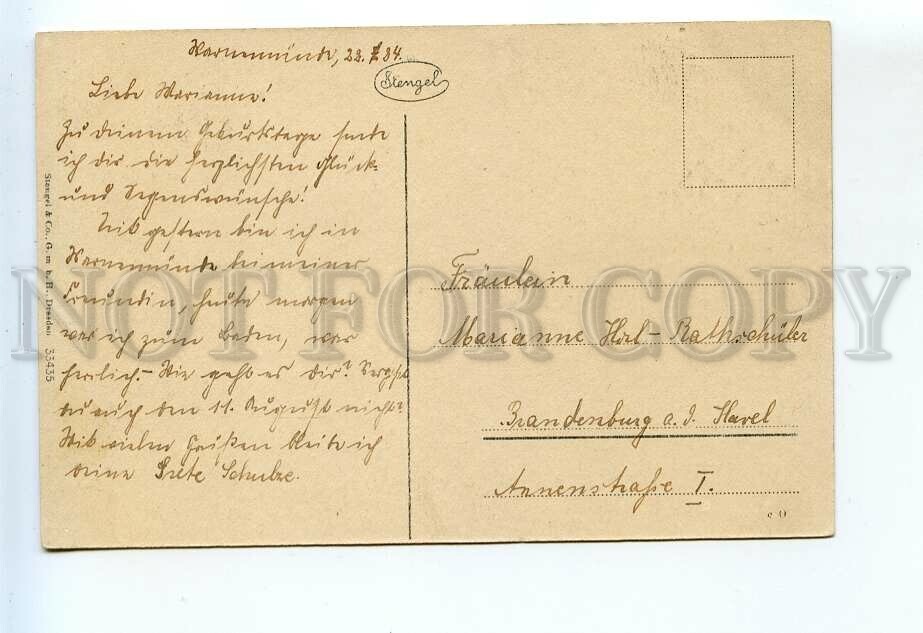 Warnemünde, 22. 7 34.
Stengel
Liebe Marianne!
Zu deinem Geburtstage sende
ich dir die herzlichsten Glück-
und Segenswünsche!
Seit gestern bin ich in
Warnemünde bei meiner
Freundin, heute morgen
war ich zum baden, war
herrlich.- Wie geht es dir?
du auch den 11. August nicht?
Mit vielen Grüßen bleibe ich
deine Grete Schulze.
Stengel & Co., G. m. b. H., Dresden 33435
Fräulein
Marianne Rathschüler
Brandenburg a. d. Havel
Annenstraße I.
NOT FOR COPY